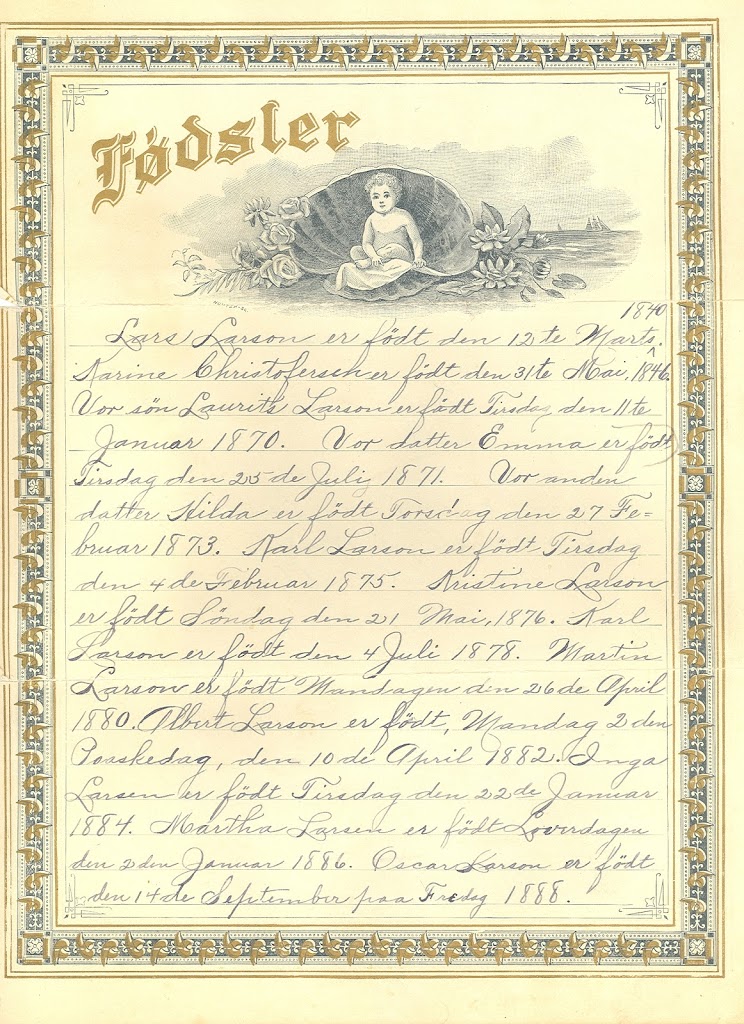 Fødsler
1840
Lars Larson er födt den 12te Marts.
Karine Christofersen er födt den 31te Mai. 1846.
Vor sön Laurits Larson er födt Tirsdag den 11te
Januar 1870. Vor datter Emma er födt
Tirsdag den 25de Juli 1871. Vor anden
datter Hilda er födt Torsdag den 27 Fe=
bruar 1873. Karl Larson er födt Tirsdag
den 4de Februar 1875. Kristine Larson
er födt Söndag den 21 Mai, 1876. Karl
Larson er födt den 4 Juli 1878. Martin
Larson er födt Mandagen den 26de April
1880. Albert Larson er födt, Mandag 2den
Paaskedag, den 10de April 1882. Inga
Larsen er födt Tirsdag den 22de Januar
1884. Martha Larsen er födt Loverdagen
den 2den Januar 1886. Oscar Larson er födt
den 14de September paa Fredag 1888.